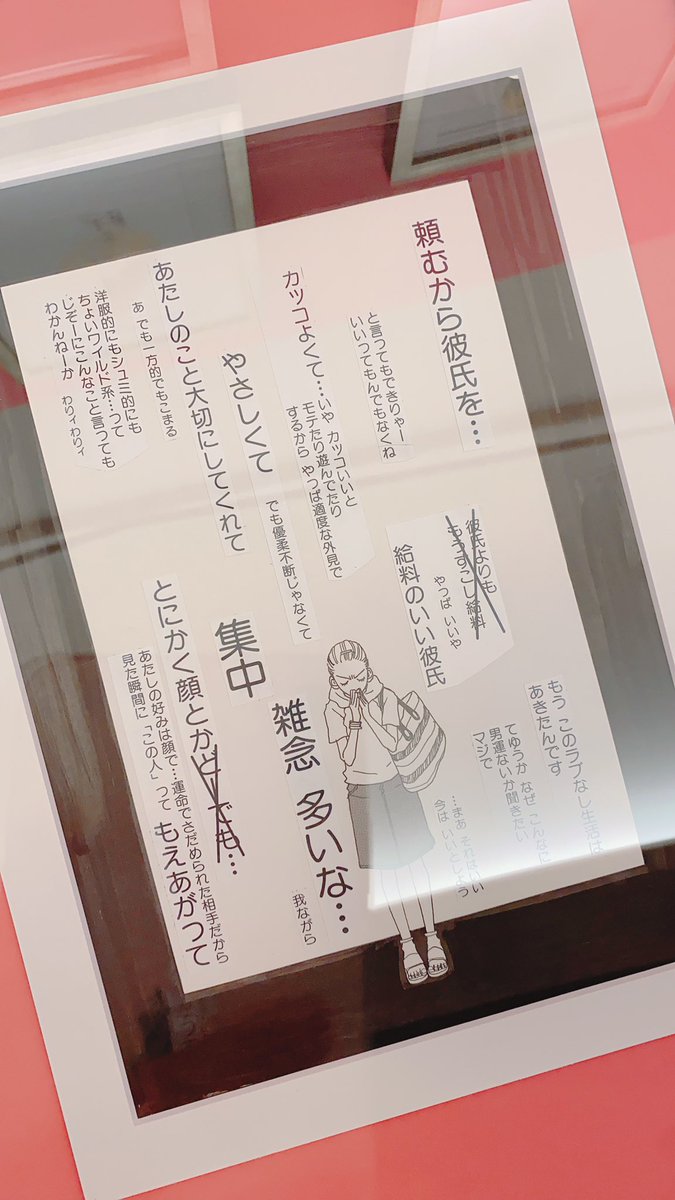 頼むから彼氏を…
と言ってもできりゃー
いいってもんでもなくね
カッコよくて…いや カッコいいと
モテたり遊んでたり
するから やっぱ適度な外見で
やさしくて
でも優柔不断じゃなくて
あたしのこと大切にしてくれて
あ でも一方的でもこまる
洋服的にもシュミ的にも
ちょいワイルド系…って
じぞーにこんなこと言っても
わかんねーか
わりィわりィ
彼氏よりも
もうすこし給料
やっぱ いいや
給料のいい彼氏
集中
雑念 多いな…
我ながら
とにかく顔とかどーでも…
あたしの好みは顔で…運命でさだめられた相手だから
見た瞬間に「この人」って もえあがって
もう このラブなし生活は
あきたんです
てゆうか なぜ こんなに
男運ないか聞きたい
マジで
…まあ それはいい
今は いいとしよう